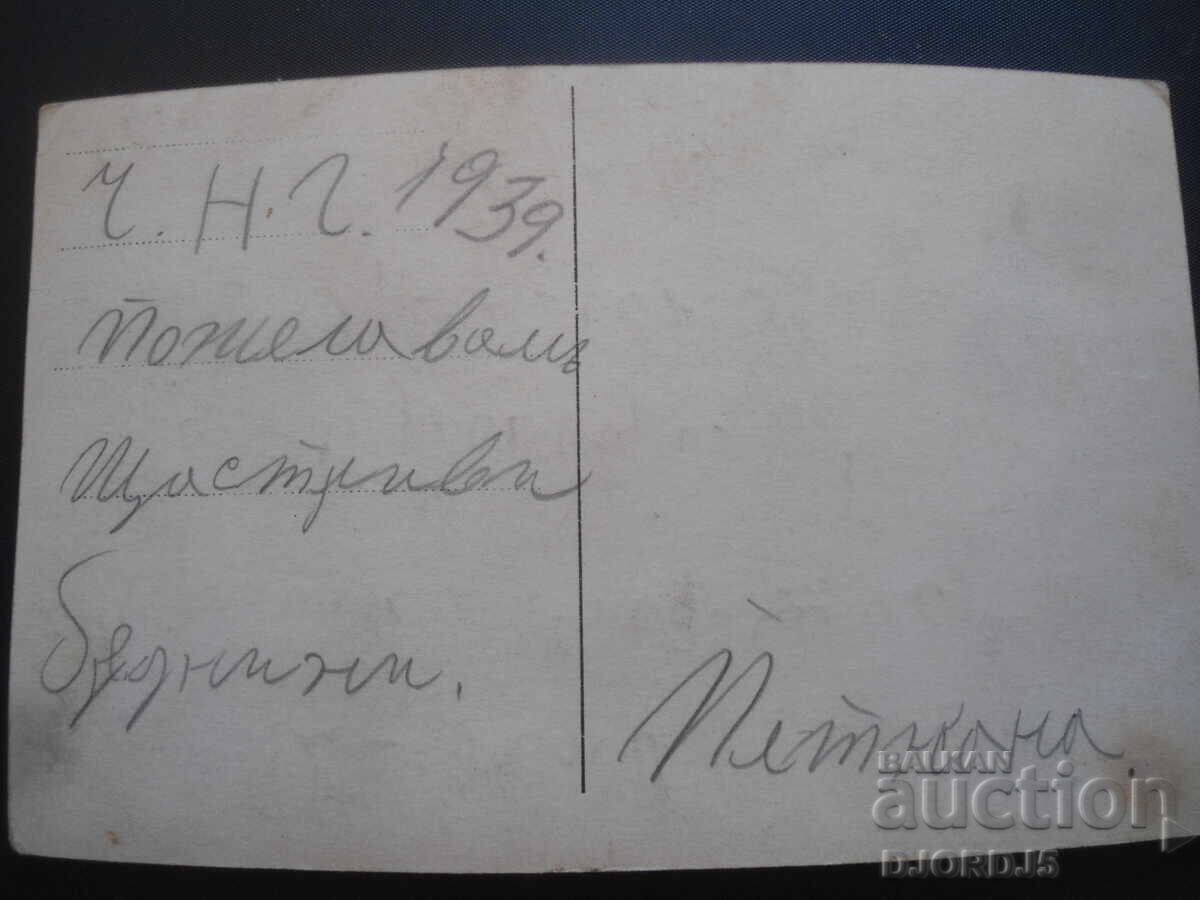 Ч. Н. Г. 1939.
Пожелавамъ
Щастливи
бѫднини.
Петкана.
BALKAN
auction
DJORDJ5